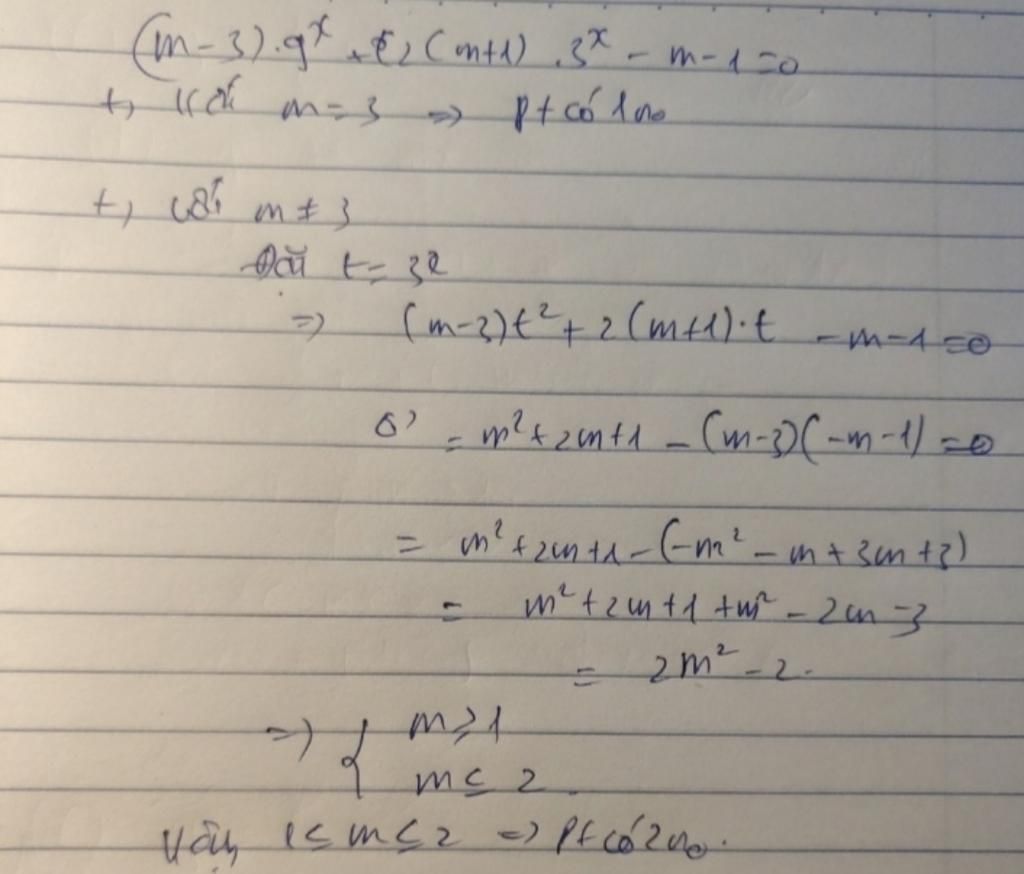 (m-3).9ˣ + 2(m+1).3ˣ - m-1=0
+, Với m=3 => pt có 1 no
+, Với m≠3
Đặt t=3ˣ
=> (m-3)t²+2(m+1).t -m-1=0
Δ' = m²+2m+1-(m-3)(-m-1)=0
= m²+2m+1-(-m²-m+3m+3)
= m²+2m+1+m²-2m-3
= 2m²-2.
=> { m≥1
m≤2.
Vậy 1≤m≤2 => pt có 2 no.